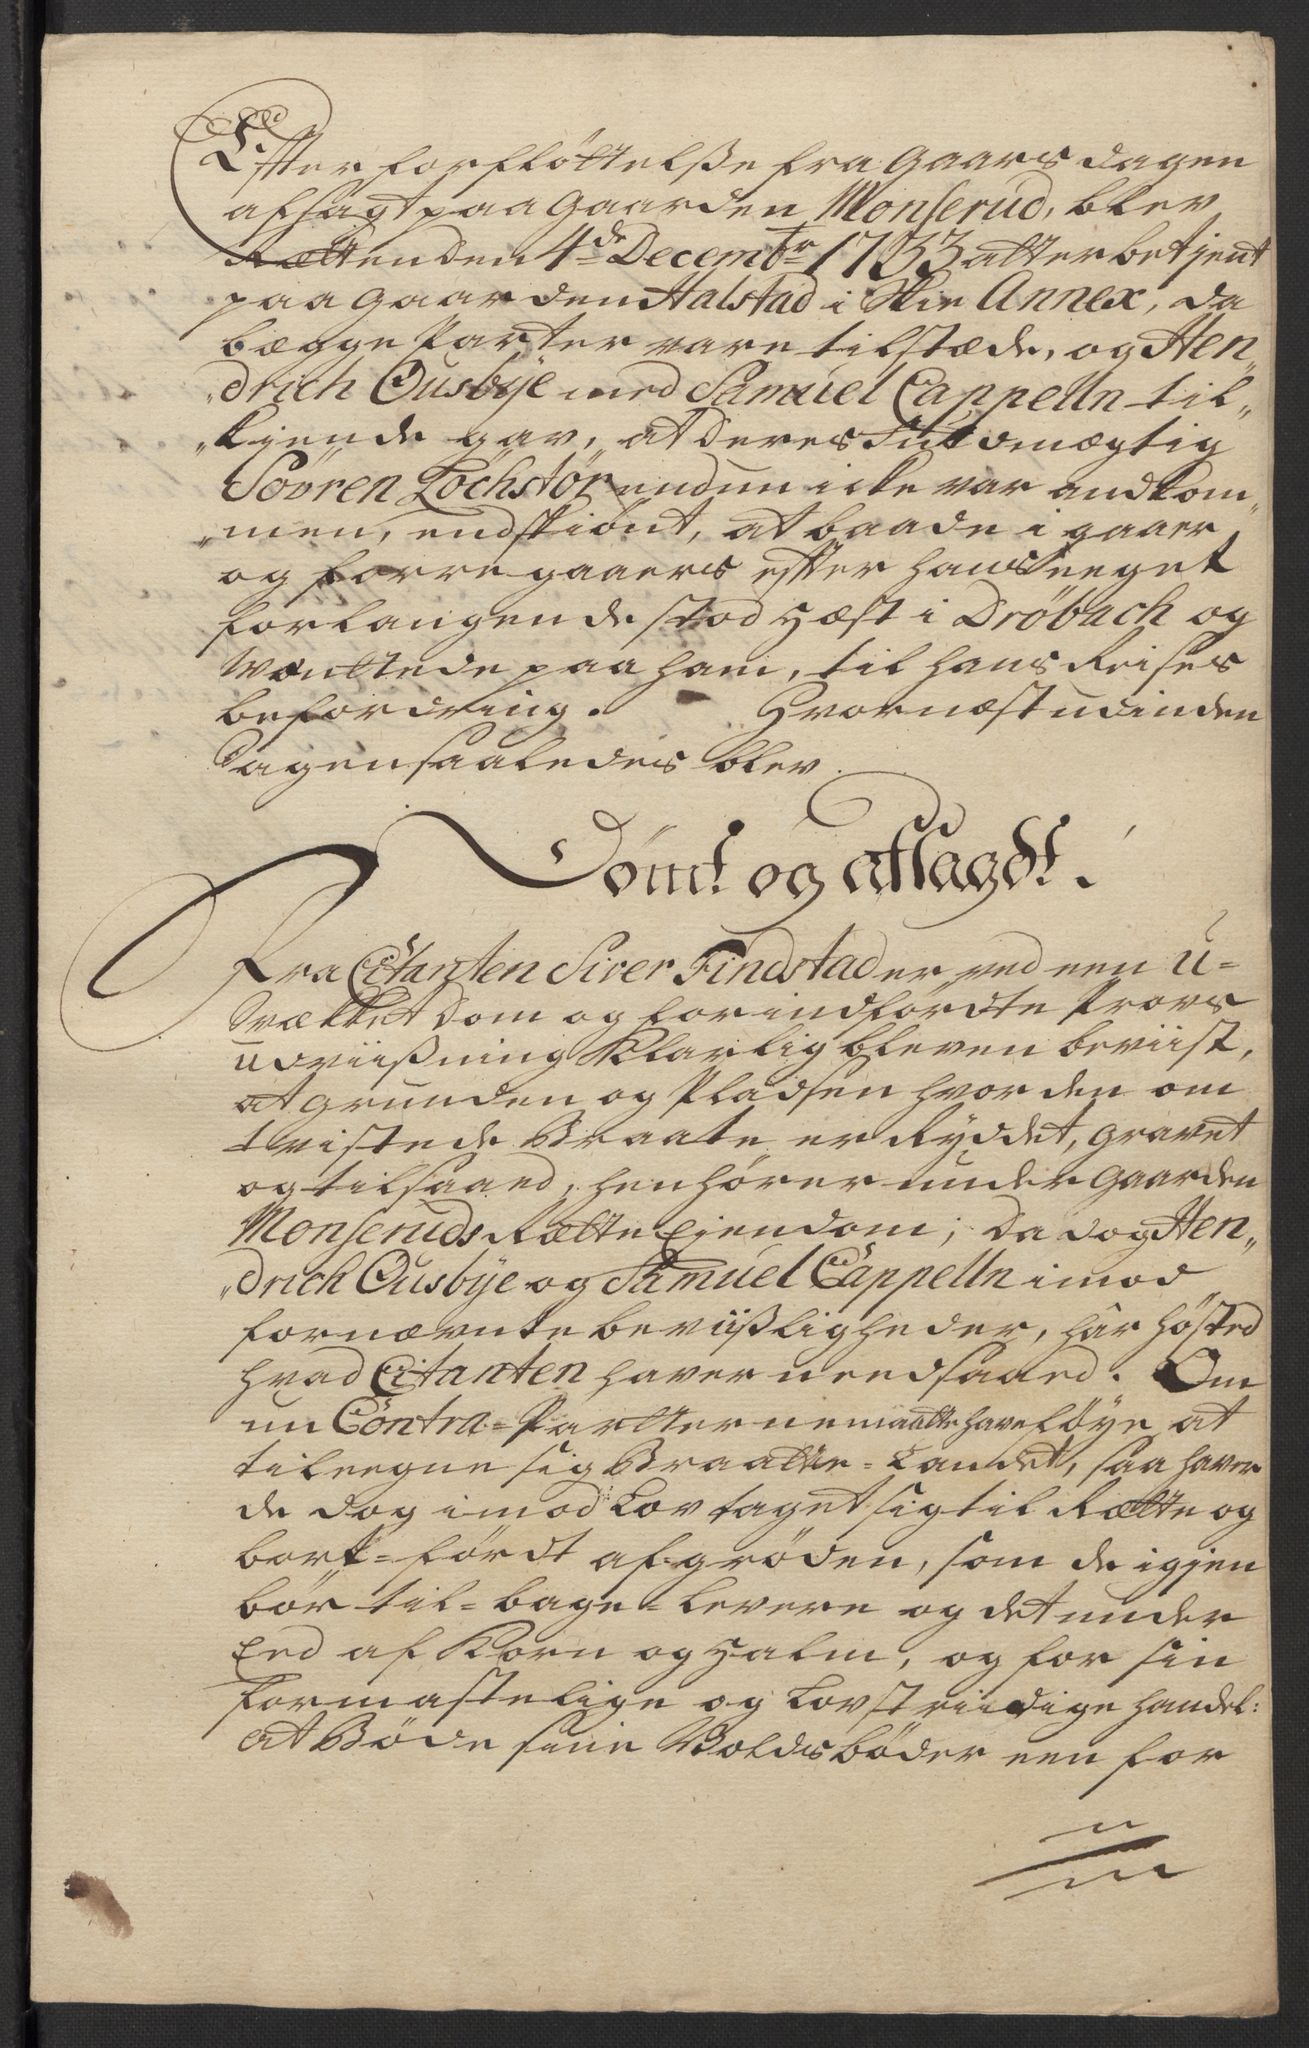 Efter forfløttelße fra Gaars dagen
afsagt paa Gaarden Monserud, blev
Rætten den 4de Decembr 1733 atter betjent
paa Gaarden Halstad i Skie Annex, da
begge Parter vare tilstæde, og Hen„
„drich Ousbye med Samuel Cappelln til„
„kjende gav, at deres Fuldmægtig
Søvren Løchstør endnu icke var andkom„
„men, endskiønt, at baade i gaaer
og forregaaers effter hans eeget
forlangende stod Hæst i Drøbach og
Wænttede paa ham, til hans Reises
befordring. Hvornæst udinden
Sagen saaledes blev
Dømt og afsagdt.
Fra Citanten Siver Findstad er ved een U=
Svækket Dom og for indførdte Provs
udviißning Klarlig bleven beviist,
at Grunden og Pladsen hvor den om
tvistede Braate er Ryddet, Gravet
og tilsaaed, henhører under Gaarden
Monseruds Rætte Eiendom; Da dog Hen„
„drich Ousbye og Samuel Cappelln imod
fornævnte beviißligheder, har høsted
hvad Citanten haver needsaaed. Om
nu Contra=Partterne maatte have føye at
tileegne sig Braatte=Landet, saa haver
de dog imod Lov taget sig til Rætte og
bort=førdt afgrøden, som de igjen
bør til=bage=levere og det under
Eed af Korn og Halm, og for sin
formastelige og Lovstriidige handel:
at Bøde siine Voldsbøder een for